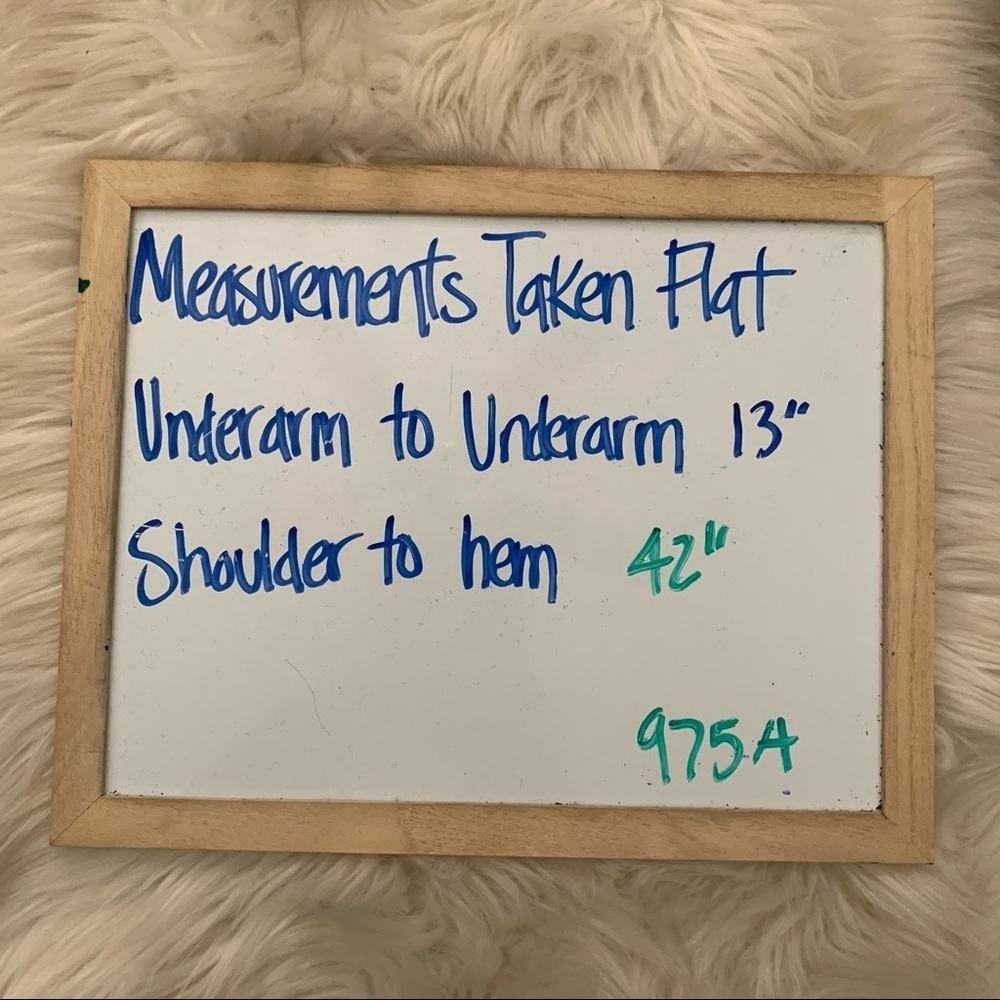 Measurements Taken Flat
Underarm to Underarm 13"
Shoulder to hem 42"
975A